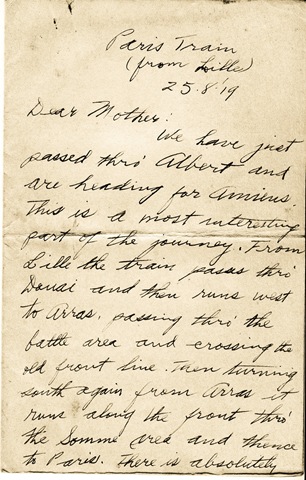 Paris Train
(from Lille)
25.8.19
Dear Mother:
We have just
passed thro' Albert and
are heading for Amiens.
This is a most interesting
part of the journey. From
Lille the train passes thro'
Douai and then runs west
to Arras, passing thro' the
battle area and crossing the
old front line. Then turning
south again from Arras it
runs along the front thro'
the Somme area and thence
to Paris. There is absolutely